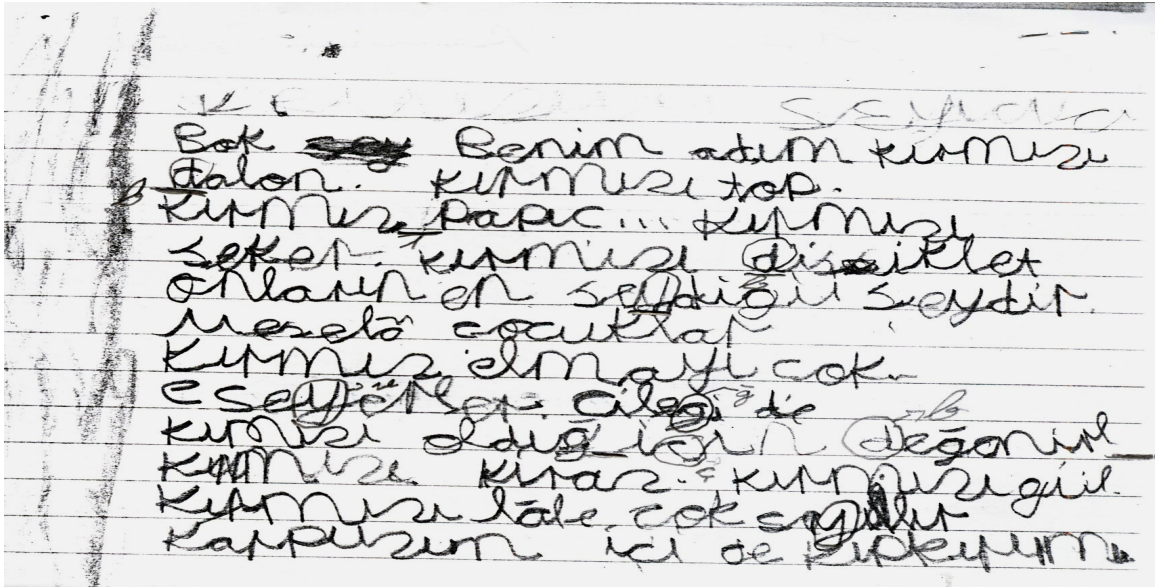 Bak Benim adım kırmızı
dalon. Kırmızı top.
Kırmızı papuc... Kırmızı
seker. kırmızı disiklet
onların en sevdiği seydir.
Meselâ cocuklar
Kırmızı elmayı cok
eseyerler. cileği de
kırmızı oldığ için değenirl
Kırmızı kiraz. kırmızı gül.
Kırmızı lâle cok seyilir
Karpuzun içi de kıpkıpım